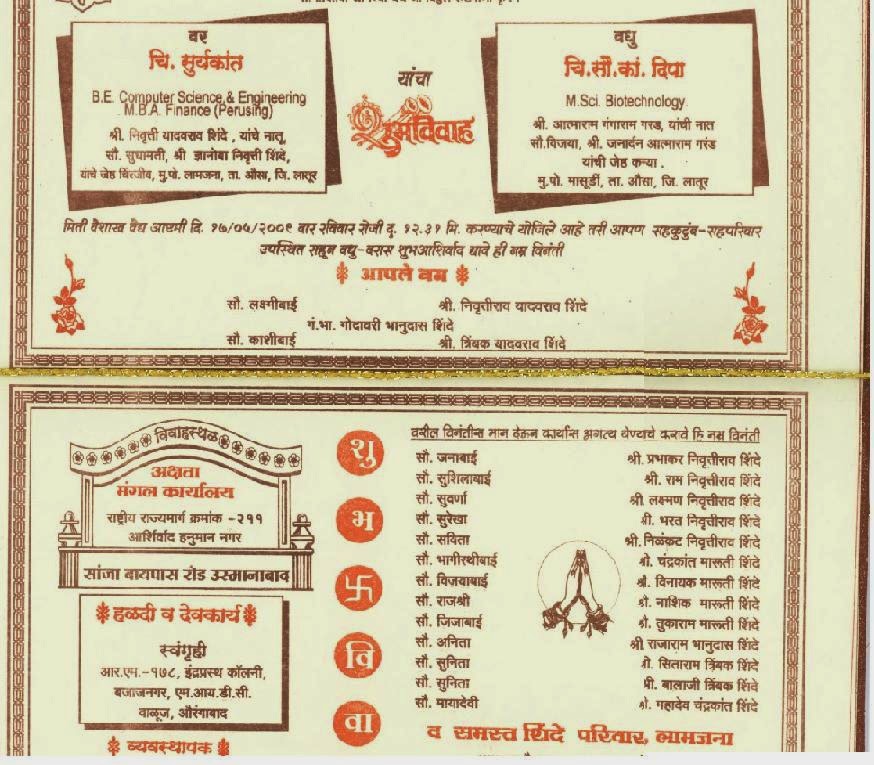 वर
चि. सुर्यकांत
B.E. Computer Science & Engineering
M.B.A. Finance (Perusing)
श्री. निवृत्ती यादवराव शिंदे , यांचे नातू,
सौ. सुधामती, श्री ज्ञानोबा निवृत्ती शिंदे,
यांचे जेष्ठ चिरंजीव, मु.पो. लामजना, ता. औसा, जि. लातूर
यांचा
शुभविवाह
वधु
चि.सौ.कां. दिपा
M.Sci. Biotechnology.
श्री. आत्माराम गंगाराम गरड, यांची नात
सौ.विजया, श्री. जनार्दन आत्माराम गरड
यांची जेष्ठ कन्या .
मु.पो. मासूर्डी, ता. औसा, जि. लातूर
मिती वैशाख वैद्य अष्टमी दि. १७/०५/२००९ वार रविवार रोजी दु. १२.३१ मि. करण्याचे योजिले आहे तरी आपण सहकुटुंब-सहपरिवार
उपस्थित राहून वधु-वरास शुभआशिर्वाद द्यावे ही नम्र विनंती
आपले नम्र
सौ. लक्ष्मीबाई श्री. निवृत्तीराव यादवराव शिंदे
गं.भा. गोदावरी भानुदास शिंदे
सौ. काशीबाई श्री. त्रिंबक यादवराव शिंदे
विवाहस्थळ
अक्षता
मंगल कार्यालय
राष्ट्रीय राज्यमार्ग क्रमांक -२११
आर्शिर्वाद हनुमान नगर
सांजा बायपास रोड उस्मानाबाद
हळदी व देवकार्य
स्वंगृही
आर.एम.-१७८, इंद्रप्रस्थ कॉलनी,
बजाजनगर, एम.आय.डी.सी.
वाळूज, औरंगाबाद
व्यवस्थापक
शु
भ
वि
वा
वरील विनंतीस मान देऊन कार्यास अगत्य येण्याचे करावे हि नम्र विनंती
सौ. जनाबाई श्री. प्रभाकर निवृत्तीराव शिंदे
सौ. सुशिलाबाई श्री. राम निवृत्तीराव शिंदे
सौ. सुवर्णा श्री. लक्ष्मण निवृत्तीराव शिंदे
सौ. सुरेखा श्री. भरत निवृत्तीराव शिंदे
सौ. सविता श्री. निळंकट निवृत्तीराव शिंदे
सौ. भागीरथीबाई श्री. चंद्रकांत मारूती शिंदे
सौ. विजयाबाई श्री. विनायक मारूती शिंदे
सौ. राजश्री श्री. नाशिक मारूती शिंदे
सौ. जिजाबाई श्री. तुकाराम मारूती शिंदे
सौ. अनिता श्री राजाराम भानुदास शिंदे
सौ. सुनिता श्री. सिताराम त्रिंबक शिंदे
सौ. सुनिता श्री. बालाजी त्रिंबक शिंदे
सौ. मायादेवी श्री. महादेव चंद्रकांत शिंदे
व समस्त शिंदे परिवार, लामजना